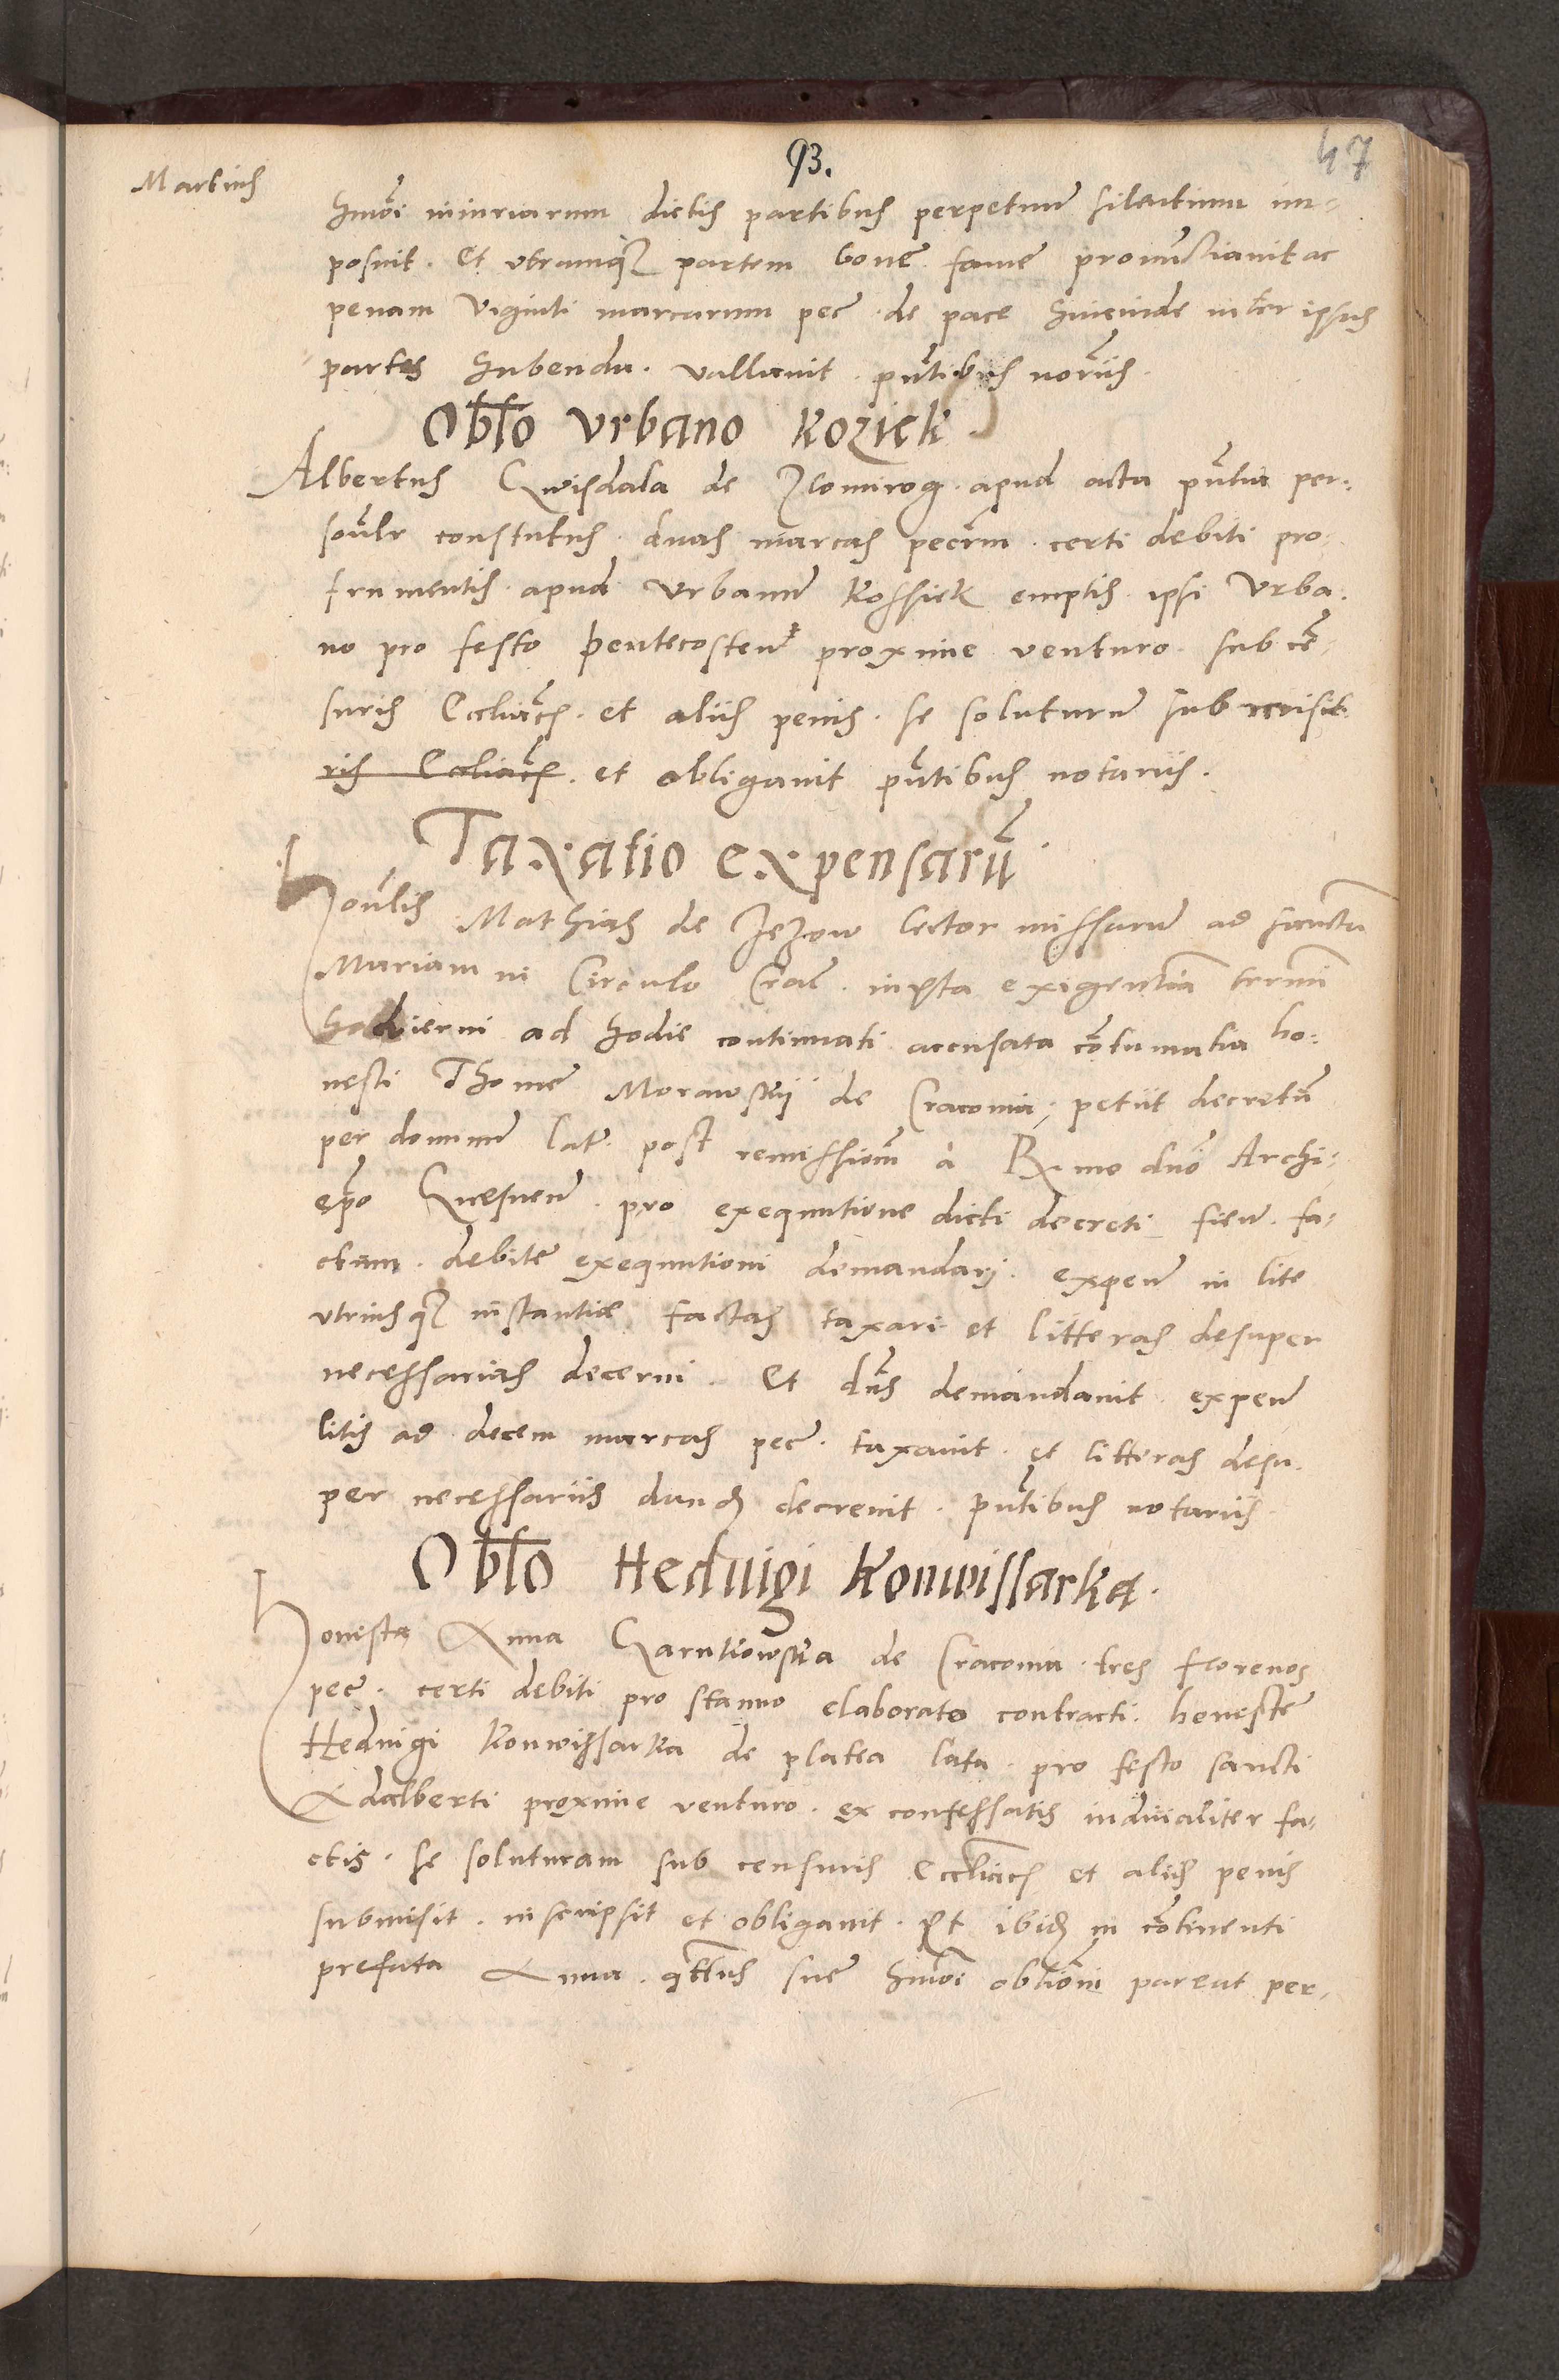 93.
47
Martius
hmõi iniuriarum dictis partibus perpetuum silentium im-
posuit. Et utramq3 partem bone fame pronunciavit ac
penam viginti marcarum pec̃ de pace hincinde inter ipsas
partes habenda. vallavit. pñtibus noriis.
Oblto Urbano Koziek
Albertus Gwisdala de Zlomirog apud acta pñtia per-
sonlr constitutus duas marcas pecc̃rm certi debiti pro
frumentis apud Urbanũ Kossiek emptis ipsi Urba-
no pro festo Pentecosten̄ proxime venturo sub cẽ-
suris Eccliaẽs et aliis penis se soluturũ submisit
ris Eccliaẽs. et obligavit pñtibus notariis.
Taxatio expensarũ
Honlis Mathias de Jezow lector missarũ ad sanctã
Mariam in Circulo Crac̃ iuxta exigentiã termi
hodierni ad hodie continuati accusata cõtumatia ho-
nesti Thome Morawskij de Cracovia petiit decretũ
per dominũ latũ post remissionẽ a R mo dnõ Archi-
epo Gnesneñ pro exequutione dicti decreti fieñ fa-
ctam debite exequutioni demandari expeñ in lite
utriusq3 instantiæ factas taxari et litteras desuper
necessarias decerni. Et dñs demandavit expeñ
litis ad decem marcas pec̃ taxavit et litteras desu-
per necessariis dand decrevit. pñtibus notariis
Oblto Heduigi Konwissarka.
Honesta Anna Garnkowska de Cracovia tres florenos
pec̃. certi debiti pro stanno elaborato contracti honestæ
Heduigi Konwissarka de platea lata pro festo sancti
Adalberti proxime venturo ex confessatis iudicialiter fa-
ctis se soluturam sub censuris Eccliaẽs et aliis penis
submisit inscripsit et obligavit. Et ibid in cõtinenti
prefata Anna qttus sue hmõi oblioni pareat per-